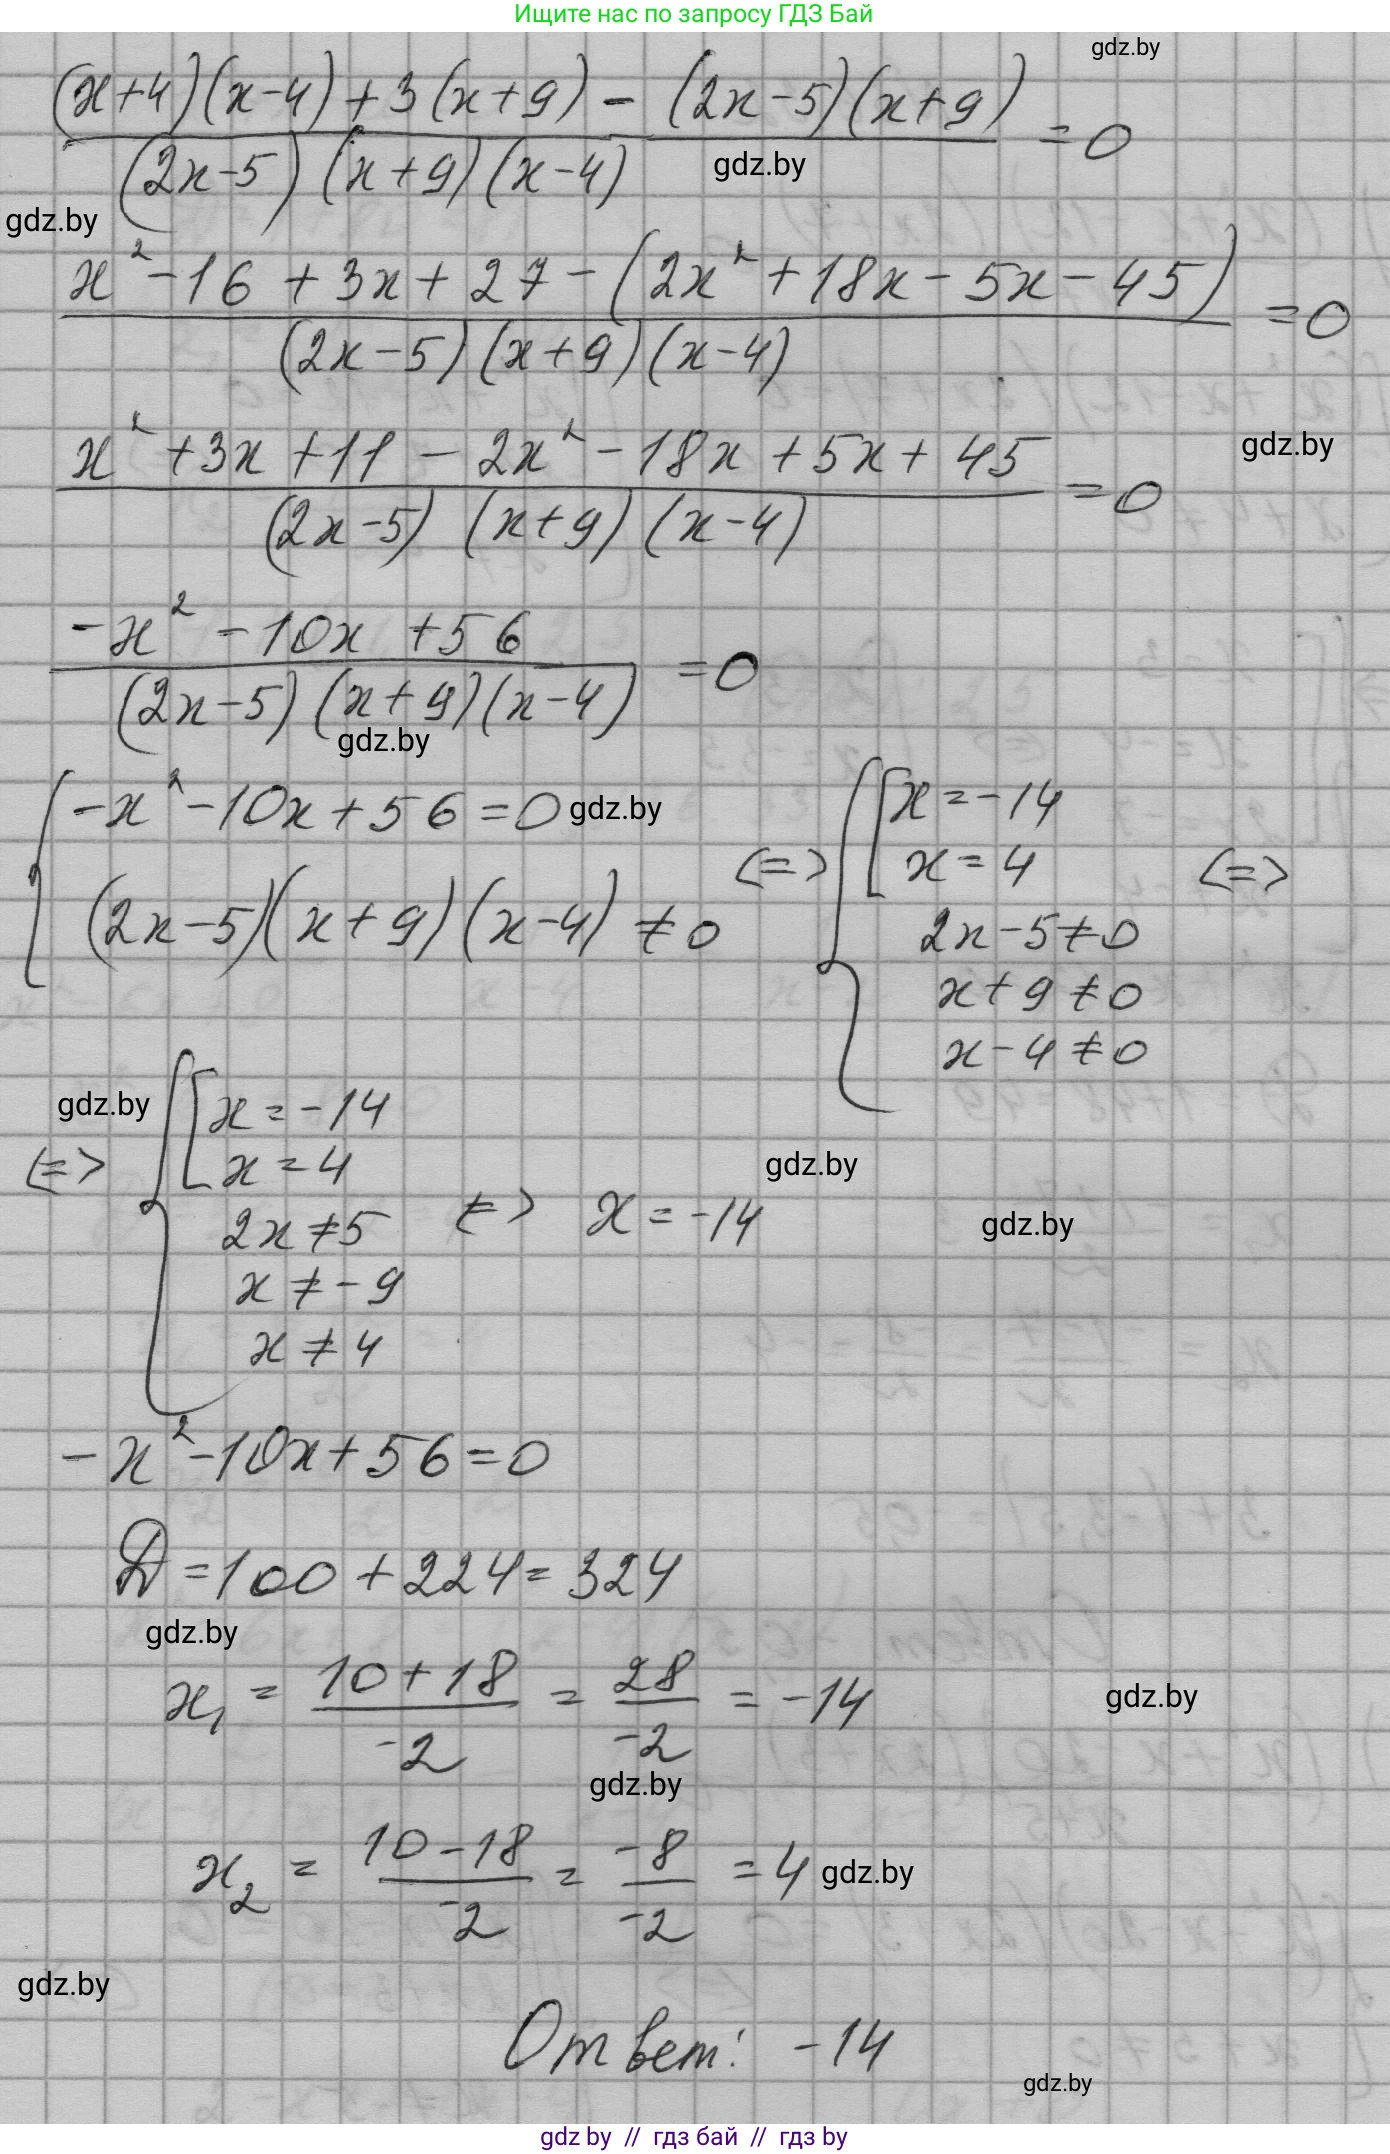 Ищите нас по запросу ГДЗ Бай
gdz.by
(x+4)(x-4)+3(x+9)-(2x-5)(x+9)
= 0
(2x-5)(x+9)(x-4)
gdz.by
gdz.by
x²-16+3x+27-(2x²+18x-5x-45)
= 0
(2x-5)(x+9)(x-4)
x²+3x+11-2x²-18x+5x+45
= 0
gdz.by
(2x-5)(x+9)(x-4)
-x²-10x+56
= 0
(2x-5)(x+9)(x-4)
gdz.by
{ -x²-10x+56=0 gdz.by
(2x-5)(x+9)(x-4)≠0
<=> { [ x=-14
x=4 <=>
2x-5≠0
x+9≠0
x-4≠0
gdz.by
<=> { [ x=-14
x=4
2x≠5
x≠-9
x≠4
<=> x=-14
gdz.by
gdz.by
-x²-10x+56=0
D=100+224=324
gdz.by
x₁ = (10+18)/(-2) = 28/(-2) = -14
gdz.by
gdz.by
x₂ = (10-18)/(-2) = (-8)/(-2) = 4 gdz.by
gdz.by
Ответ: -14
gdz.by
gdz by // гдз бай // гдз by